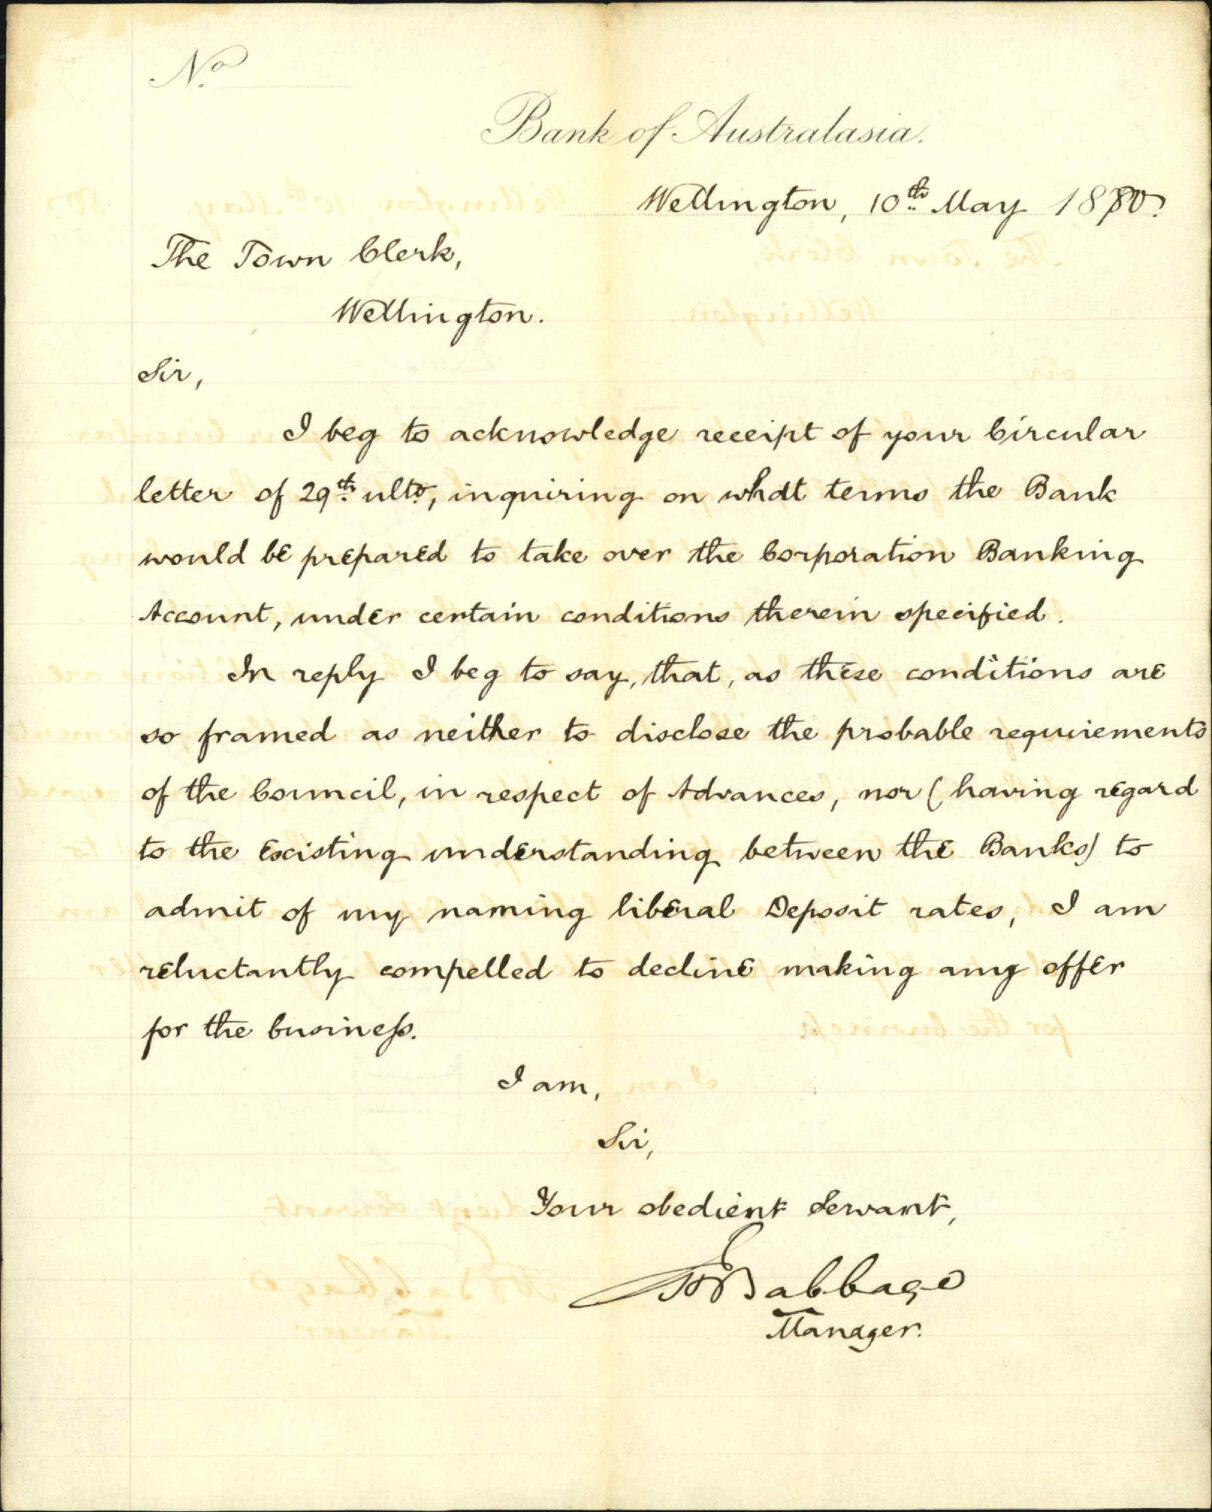 No.
Bank of Australasia.
Wellington, 10th May 1880.
The Town Clerk,
Wellington.
Sir,
I beg to acknowledge receipt of your Circular
letter of 29th ulto, inquiring on what terms the Bank
would be prepared to take over the Corporation Banking
Account, under certain conditions therein specified.
In reply I beg to say, that, as these conditions are
so framed as neither to disclose the probable requirements
of the Council, in respect of Advances, nor (having regard
to the existing understanding between the Banks) to
admit of my naming liberal Deposit rates, I am
reluctantly compelled to decline making any offer
for the business.
I am,
Sir,
Your obedient Servant,
Babbage
Manager.